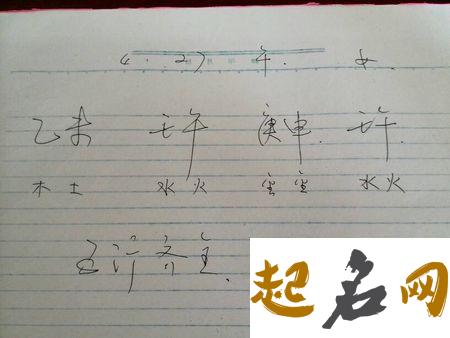 4.27 午. 女
乙未 壬午 庚申. 壬午
木土 水火 金金 水火
五行齐全.
起名网